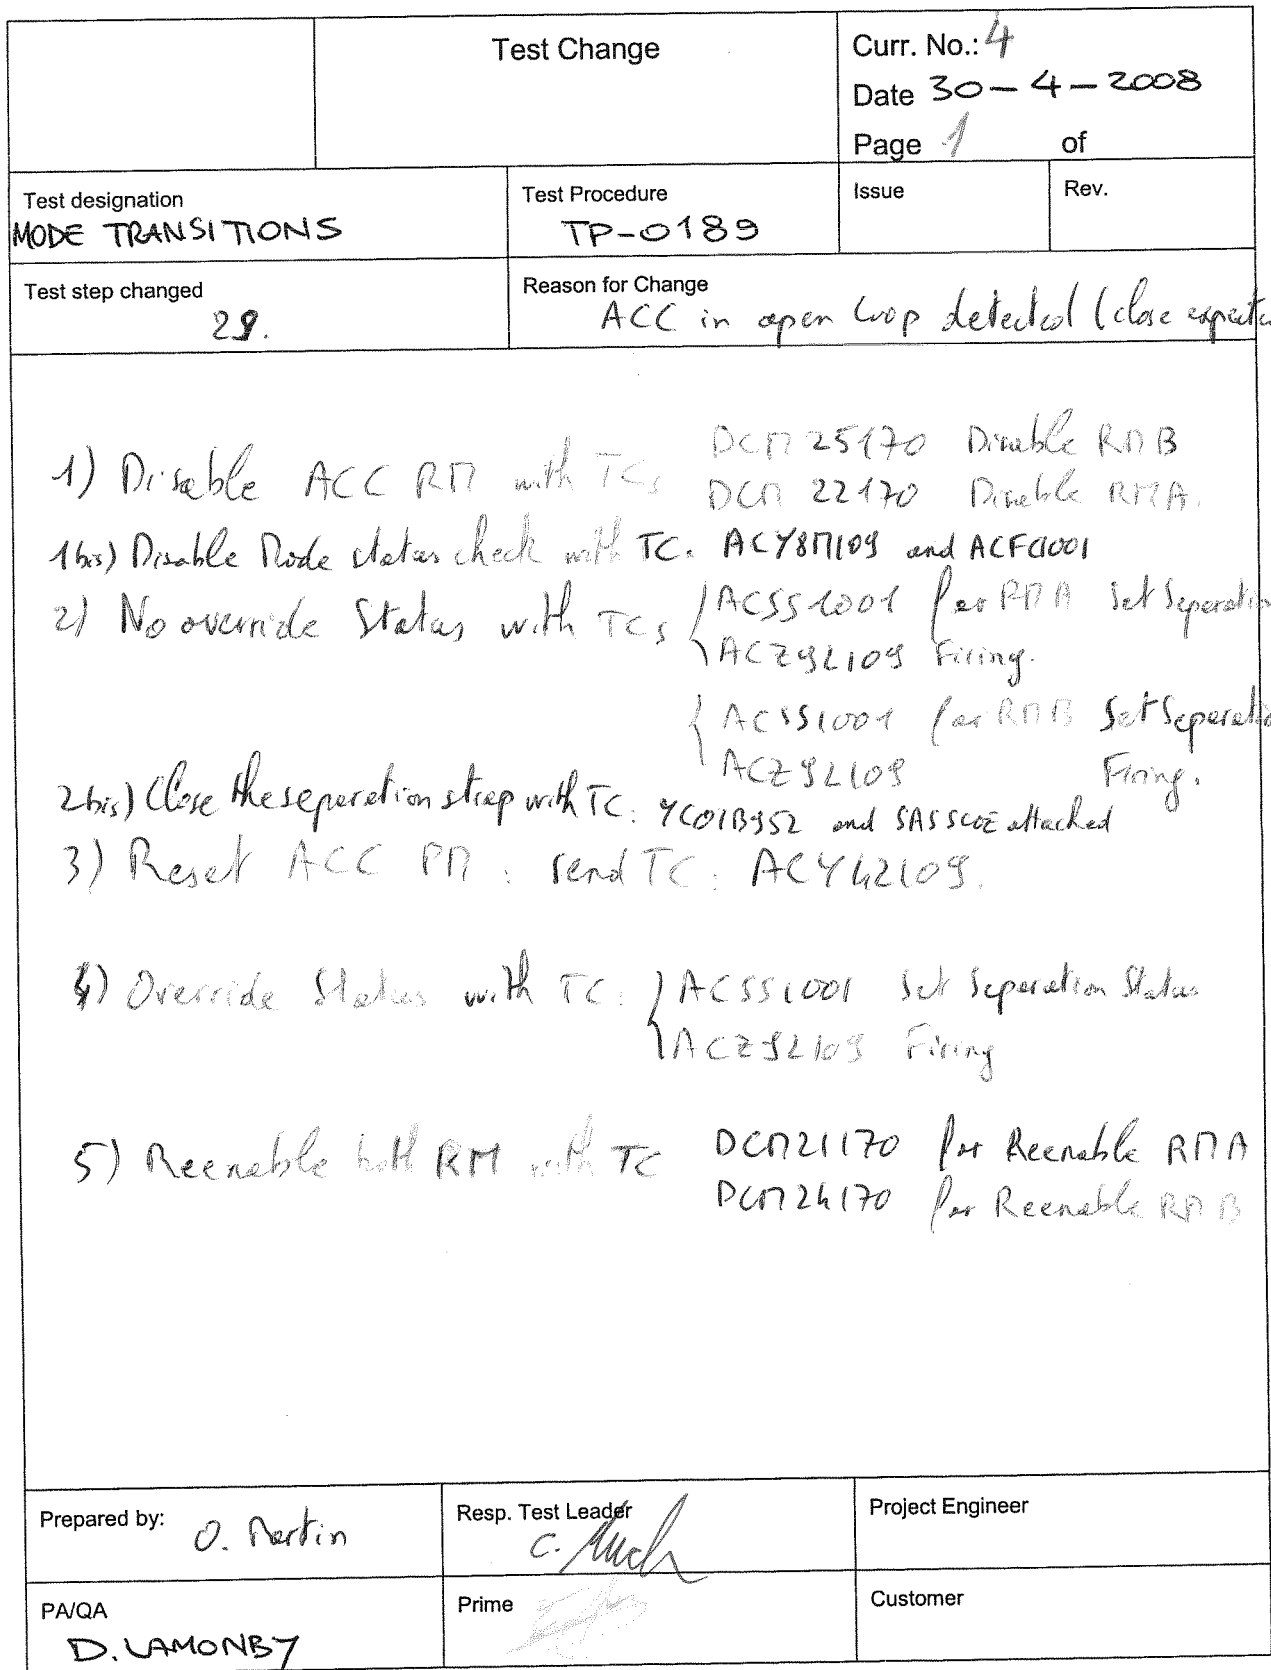 Test Change
Curr. No.: 4
Date 30-4-2008
Page 1 of
Test designation
MODE TRANSITIONS
Test Procedure
TP-0189
Issue
Rev.
Test step changed
29.
Reason for Change
ACC in open loop detected (close expecte
1) Disable ACC RM with TCs DCM 25170 Disable RMB
DCM 22170 Disable RMA.
1bis) Disable Mode status check with TC. ACY8M109 and
2) No override Status with TCs { ACSS1001 for RMA Set Seperation
ACZ92109 Firing.
{ ACSS1001 for RMB Set Seperatio
ACZ92109 Firing.
2bis) Close the seperation strap with TC: and attached
3) Reset ACC PM : send TC: ACY42109.
4) Override Status with TC: { ACSS1001 Set Seperation Status
ACZ92109 Firing
5) Reenable both RM with TC DCM21170 for Reenable RMA
DCM24170 for Reenable RMB
Prepared by: O. Martin
Resp. Test Leader
C.
Project Engineer
PA/QA
D. LAMONBY
Prime
Customer